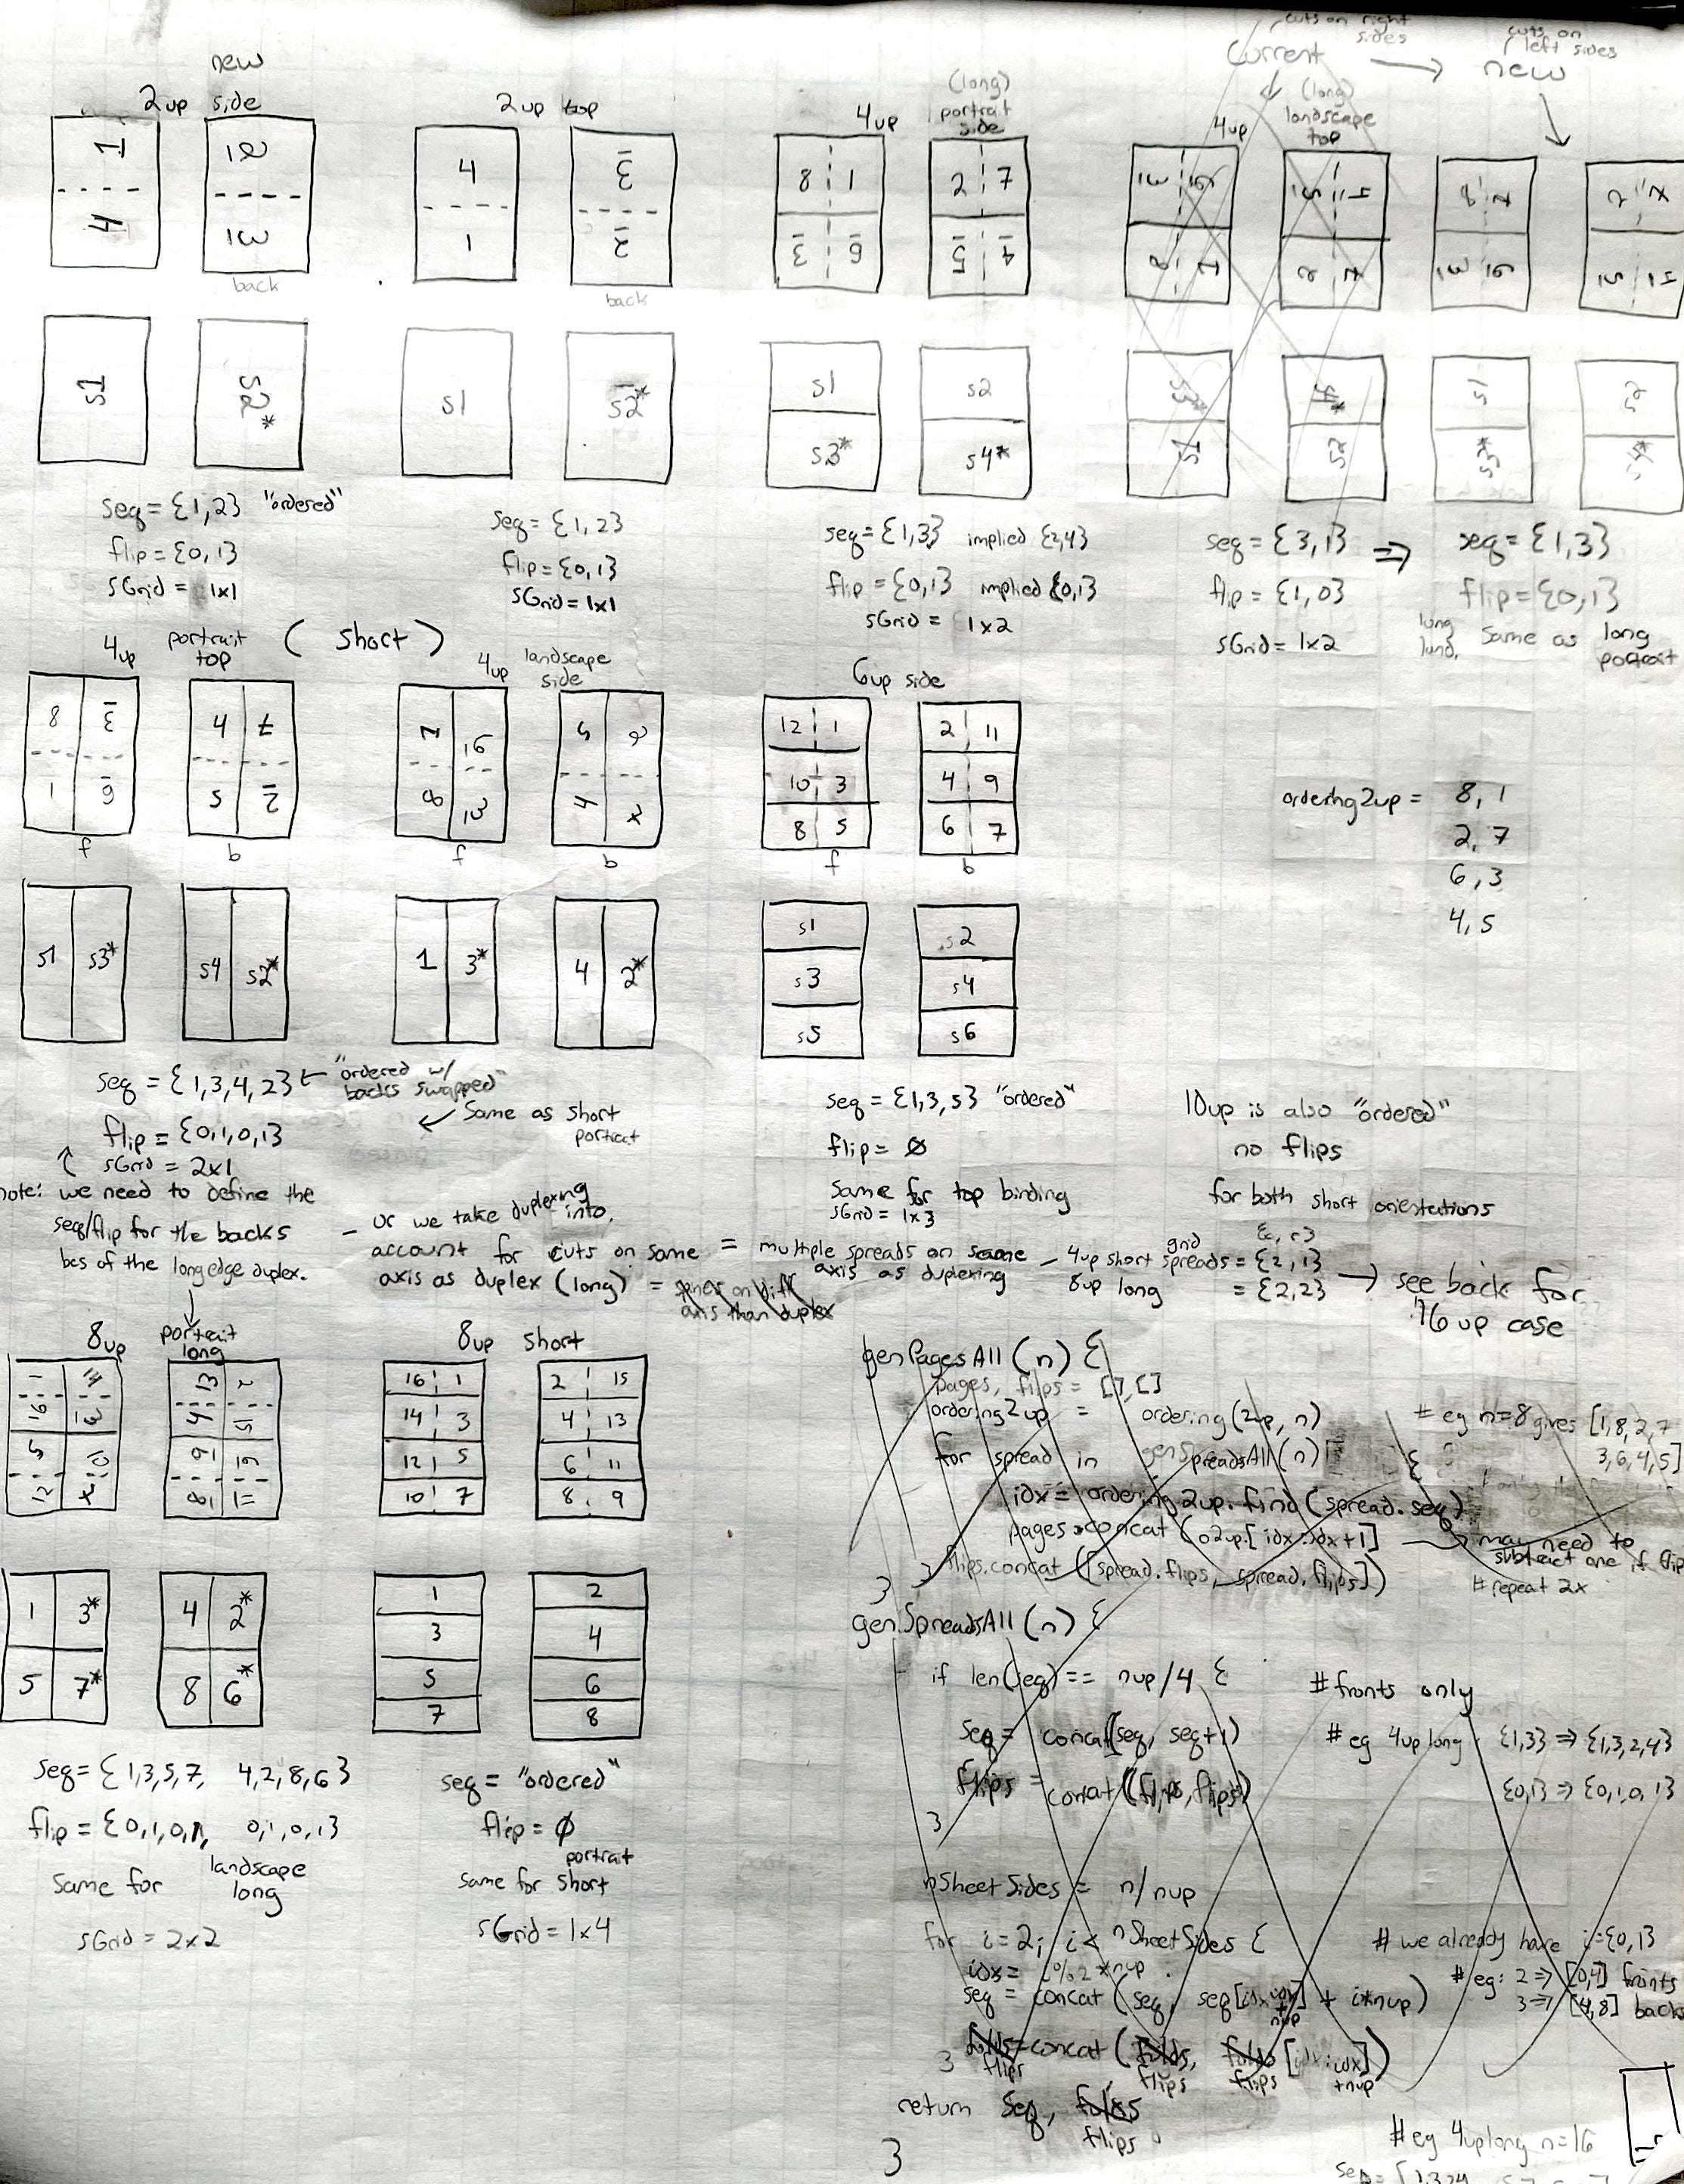 new
2up side
1
4
2
3
back
2up top
4
1
3
2
back
4up (long) portrait side
8 1
3 6
2 7
4 5
cuts on right sides
Current → new
cuts on left sides
4up (long) landscape top
3 6
8 1
8 1
3 6
2 7
s1
s2*
s1
s2*
s1
s3*
s2
s4*
s3*
s1
s4*
s2
s1
s3*
s2
s4*
seq = {1,2} "ordered"
flip = {0,1}
sGrid = 1x1
seq = {1,2}
flip = {0,1}
sGrid = 1x1
seq = {1,3} implied {2,4}
flip = {0,1} implied {0,1}
sGrid = 1x2
seq = {3,1} ⇒ seq = {1,3}
flip = {1,0} flip = {0,1}
sGrid = 1x2
long land. same as long portrait
4up portrait top (short)
8 3
1 6
f
4 7
5 2
b
4up landscape side
1 6
8 3
f
5 2
4 7
b
6up side
12 1
10 3
8 5
f
2 11
4 9
6 7
b
ordering2up = 8, 1
2, 7
6, 3
4, 5
s1 s3*
s4 s2*
1 3*
4 2*
s1
s3
s5
s2
s4
s6
seq = {1,3,4,2} ← "ordered w/ backs swapped"
flip = {0,1,0,1}
← Same as short portrait
sGrid = 2x1
note: we need to define the
seq/flip for the backs
bcs of the long edge duplex.
- or we take duplexing into
account for cuts on same
axis as duplex (long)
= multiple spreads on same
axis as duplexing
= spines on diff
axis than duplex
- 4up short spreads = {2,1}
grid {c, r}
8up long = {2,2}
→ see back for
16 up case
seq = {1,3,5} "ordered"
flip = ∅
same for top binding
sGrid = 1x3
10up is also "ordered"
no flips
for both short orientations
8up portrait long
8up short
16 1
14 3
12 5
10 7
2 15
4 13
6 11
8 9
1 3*
5 7*
4 2*
8 6*
1
3
5
7
2
4
6
8
seq = {1,3,5,7, 4,2,8,6}
flip = {0,1,0,1, 0,1,0,1}
same for landscape long
sGrid = 2x2
seq = "ordered"
flip = ∅
same for short portrait
sGrid = 1x4
genPagesAll (n) {
pages, flips = [],[]
ordering2up = ordering(2up, n)
# eg n=8 gives [1,8,2,7
3,6,4,5]
for spread in genSpreadsAll(n) {
idx = ordering2up.find(spread.seq)
pages.concat(o2up[idx:idx+1]
may need to
subtract one if flip
flips.concat([spread.flips, spread.flips])
# repeat 2x
}
}
genSpreadsAll (n) {
if len(seq) == nup/4 {
# fronts only
seq = concat(seq, seq+1)
# eg 4up long {1,3} ⇒ {1,3,2,4}
flips = concat(flips, flips)
{0,1} ⇒ {0,1,0,1}
}
nSheetSides = n/nup
for i=2; i< nSheetSides {
# we already have i={0,1}
idx = i%2*nup
# eg: 2 ⇒ [0,4] fronts
3 ⇒ [4,8] backs
seq = concat(seq, seq[idx:idx+nup] + i*nup)
flips = concat(flips, flips[idx:idx+nup])
}
return seq, flips
}
# eg 4uplong n=16